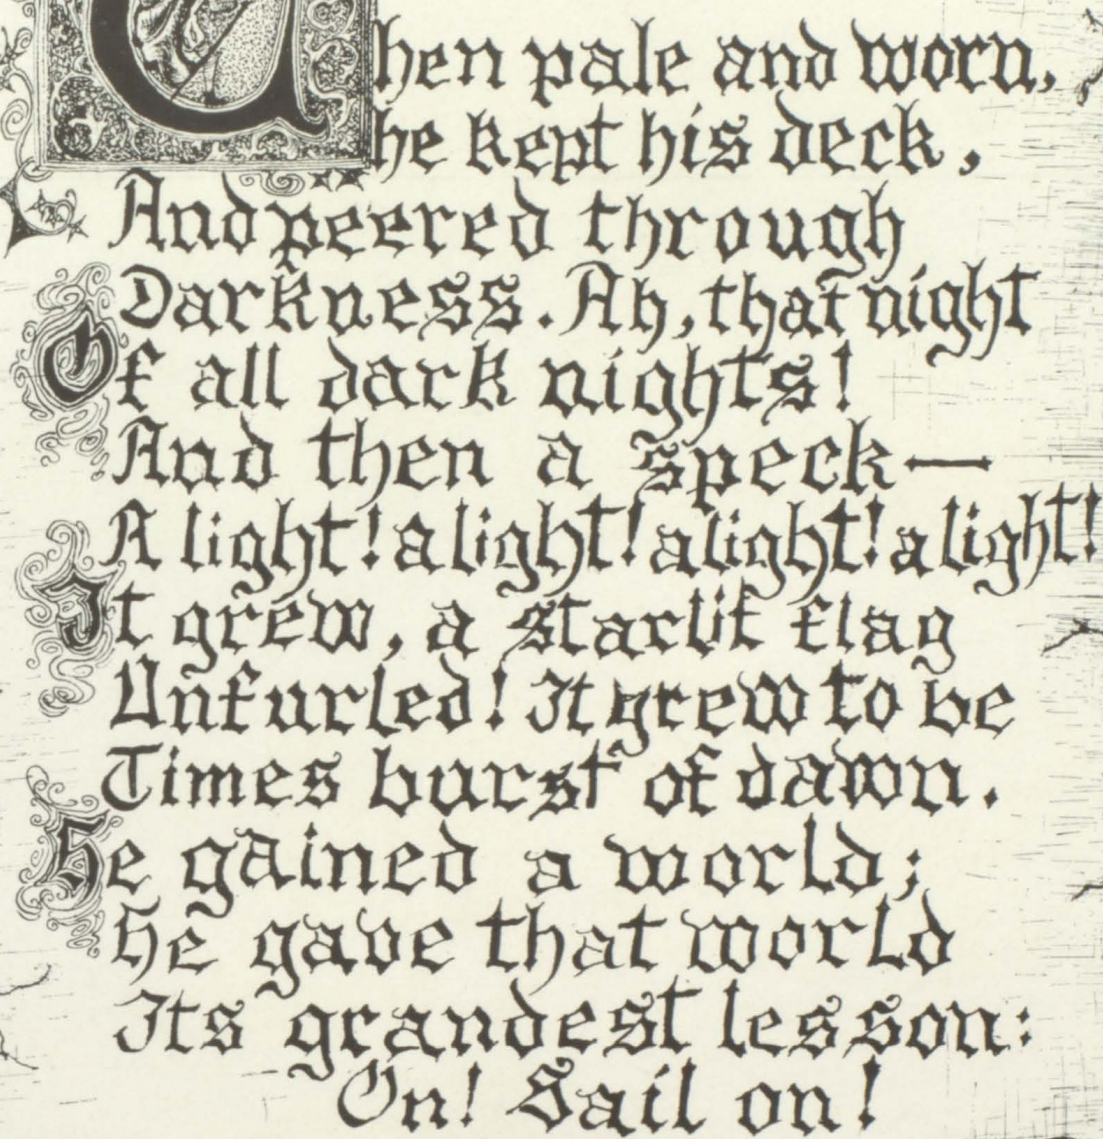 Then pale and worn,
he kept his deck,
And peered through
Darkness. Ah, that night
Of all dark nights!
And then a speck—
A light! a light! a light! a light!
It grew, a starlit flag
Unfurled! It grew to be
Times burst of dawn.
He gained a world;
He gave that world
Its grandest lesson:
On! Sail on!